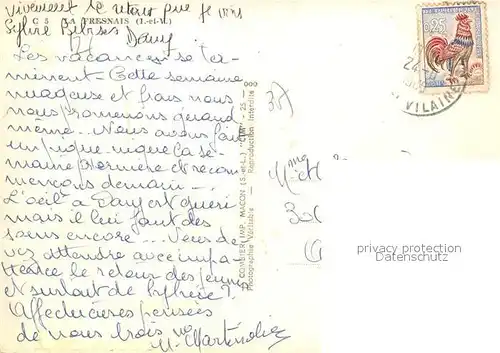 vivement le retour que je vois
C 5 LA FRESNAIS (I.-et-V.)
Dany
Les vacances se ter-
minent. Cette semaine
nuageuse et frais nous
nous promenons quand
même... Nous avons fait
un pique-nique la se-
maine dernière et recom-
mençons demain...
L'oeil à Dany est guéri
mais il lui faut des
soins encore... Vous de-
vez attendre avec impa-
tience le retour des jeunes
et surtout de
Affectueuses pensées
de nous trois
M.
COMBIER IMP. MACON (S.-et-L.) "CIM"
Photographie Véritable - Reproduction Interdite
0,25
VILAINE
privacy protection
Datenschutz